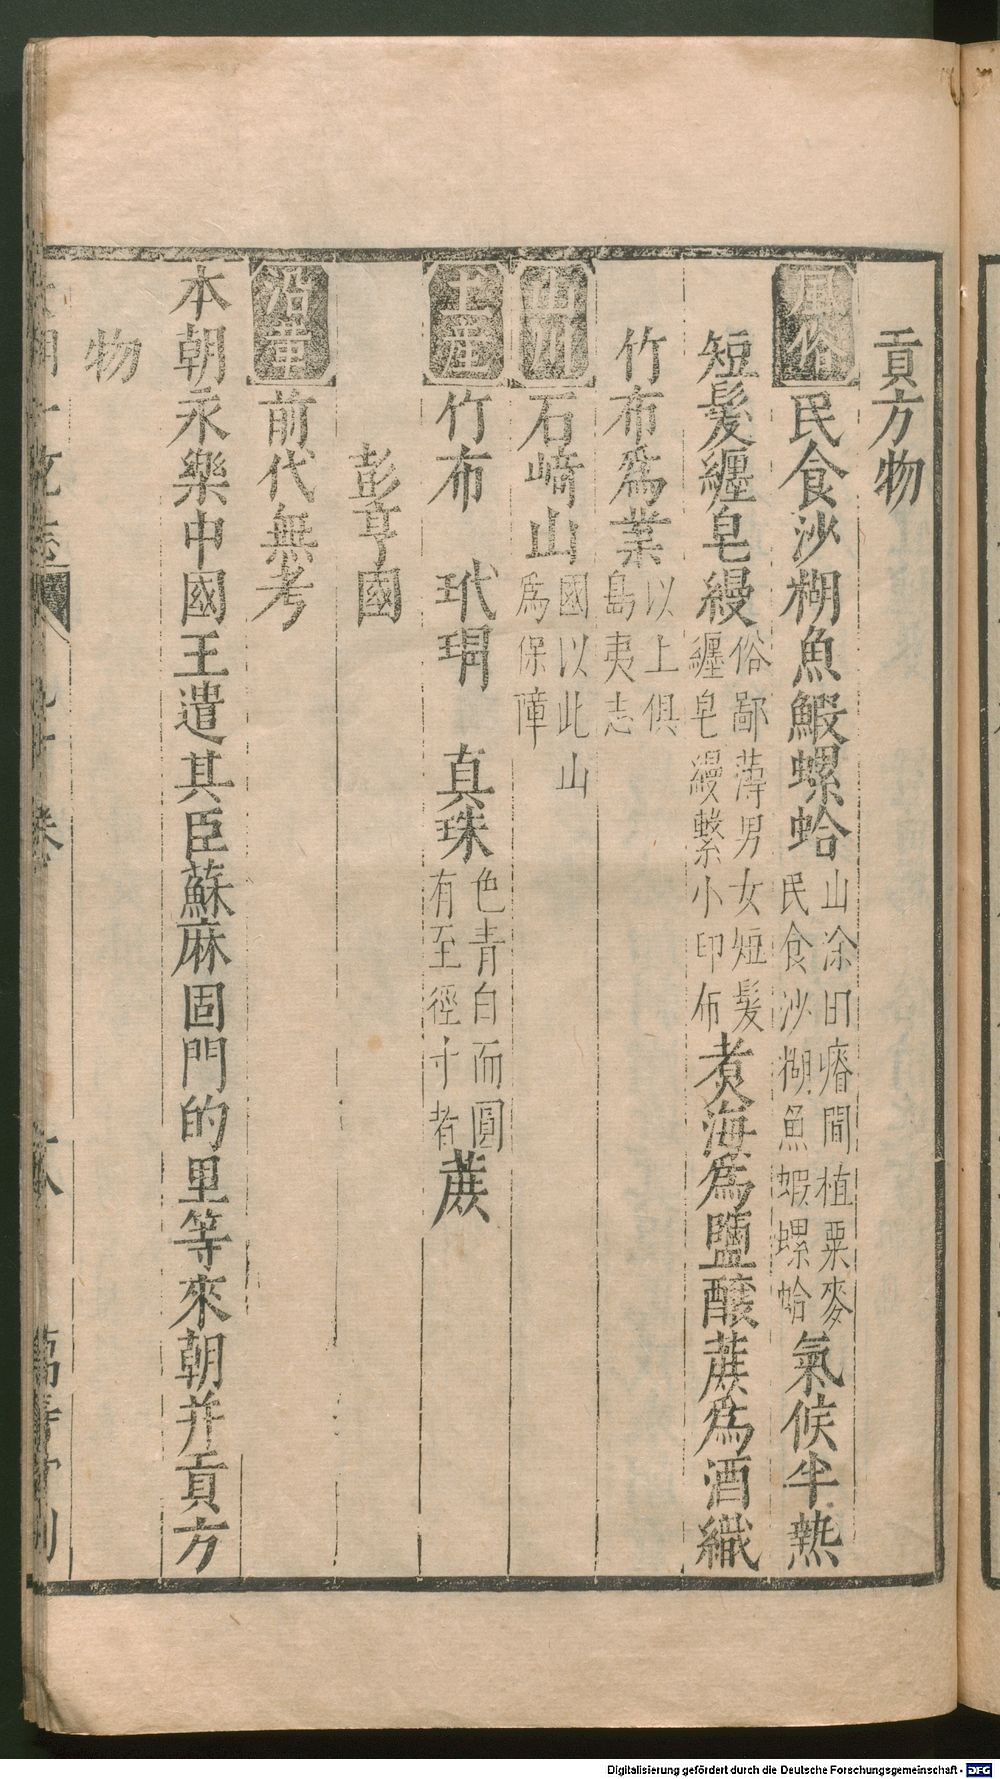 貢方物
風俗 民食沙糊魚鰕螺蛤 山涂田瘠間植粟麥 民食沙糊魚蝦螺蛤 氣候半熱
短髮纏皂縵 俗鄙薄男女短髮 纏皂縵繫小印布 煮海為鹽釀蔗為酒織
竹布為業 以上俱 島夷志
山川 石崎山 國以此山 為保障
土產 竹布 玳瑁 真珠 色青白而圓 有至徑寸者 蔗
彭亨國
沿革 前代無考
本朝永樂中國王遣其臣蘇麻固門的里等來朝并貢方
物
一統志 九十卷
萬壽堂刊
Digitalisierung gefördert durch die Deutsche Forschungsgemeinschaft - DFG